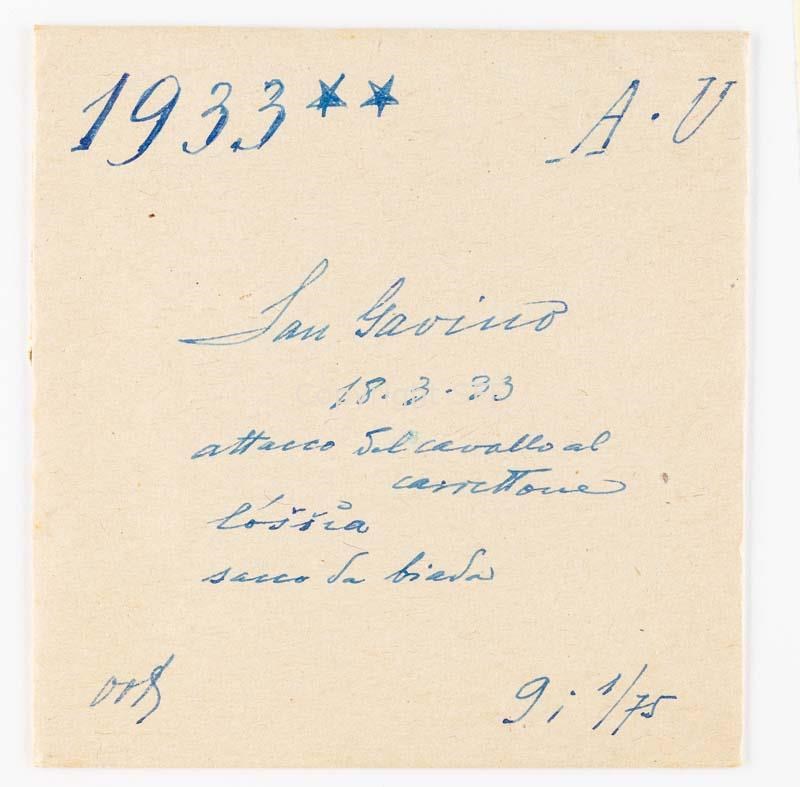 1933** A. U
San Gavino
18.3.33
attacco del cavallo al
carrettone
lóššia
sacco da biada
9; 1/75